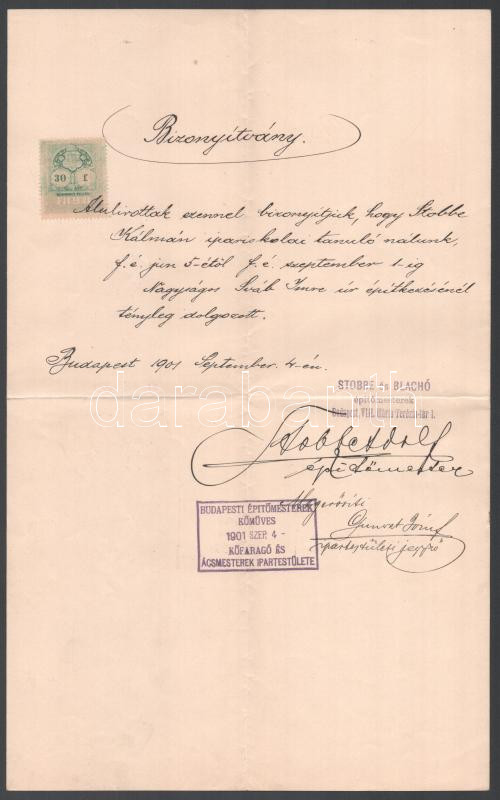 Bizonyítvány.
30 f
Alulirottak ezennel bizonyítjuk, hogy Stobbe
Kálmán ipariskolai tanuló nálunk,
f. é. jun 5-étöl f. é. szeptember 1-ig
Nagyságos Sváb Imre úr épitkezésénél
tényleg dolgozott.
Budapest 1901 September. 4-én.
STOBBE és BLACHÓ
épitőmesterek
Budapest, VIII. Mária Terézia-tér 1.
Stobbe Adolf
épitőmester
Megerősiti
BUDAPESTI ÉPITŐMESTEREK
KŐMŰVES
1901 SZEP. 4 -
KŐFARAGÓ ÉS
ÁCSMESTEREK IPARTESTÜLETE
József
ipartestületi jegyző
darabanth